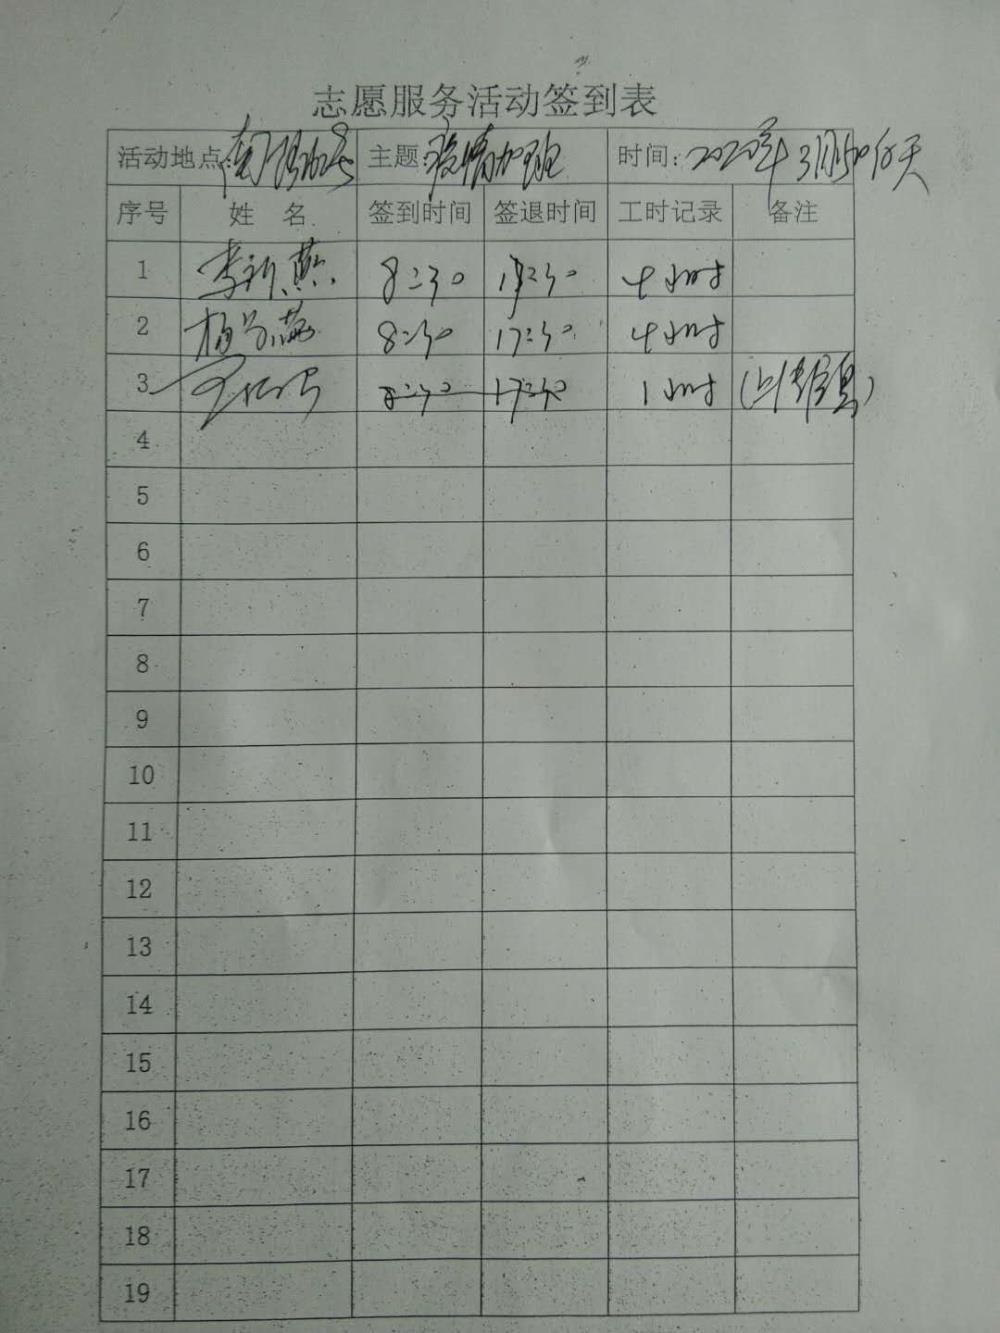 志愿服务活动签到表
活动地点: 主题:疫情加班 时间:2020年3月5日
序号 姓 名 签到时间 签退时间 工时记录 备注
1 李新燕 8:30 17:30 4小时
2 8:30 17:30 4小时
3 8:30 17:30 1小时
4
5
6
7
8
9
10
11
12
13
14
15
16
17
18
19